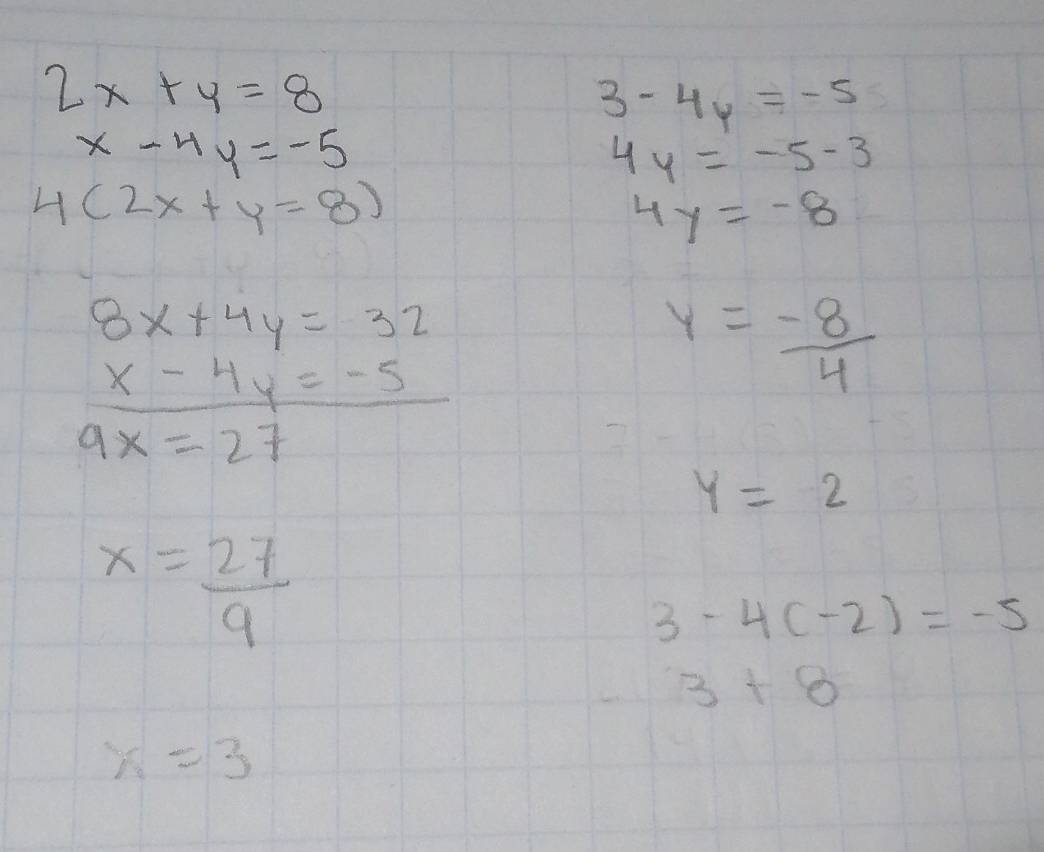 2x + y = 8
x - 4y = -5
4(2x + y = 8)
8x + 4y = 32
x - 4y = -5
9x = 27
x = 27/9
x = 3
3 - 4y = -5
4y = -5 - 3
4y = -8
y = -8/4
y = 2
3 - 4(-2) = -5
3 + 8